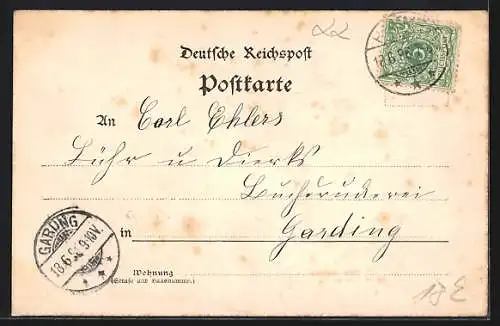 Deutsche Reichspost
Postkarte
An Carl Ehlers
Lühr u Dierks
Buchdruckerei
in Garding
Wohnung
(Straße und Hausnummer)
GARDING
18.6.98 9-10V.
18.6.98